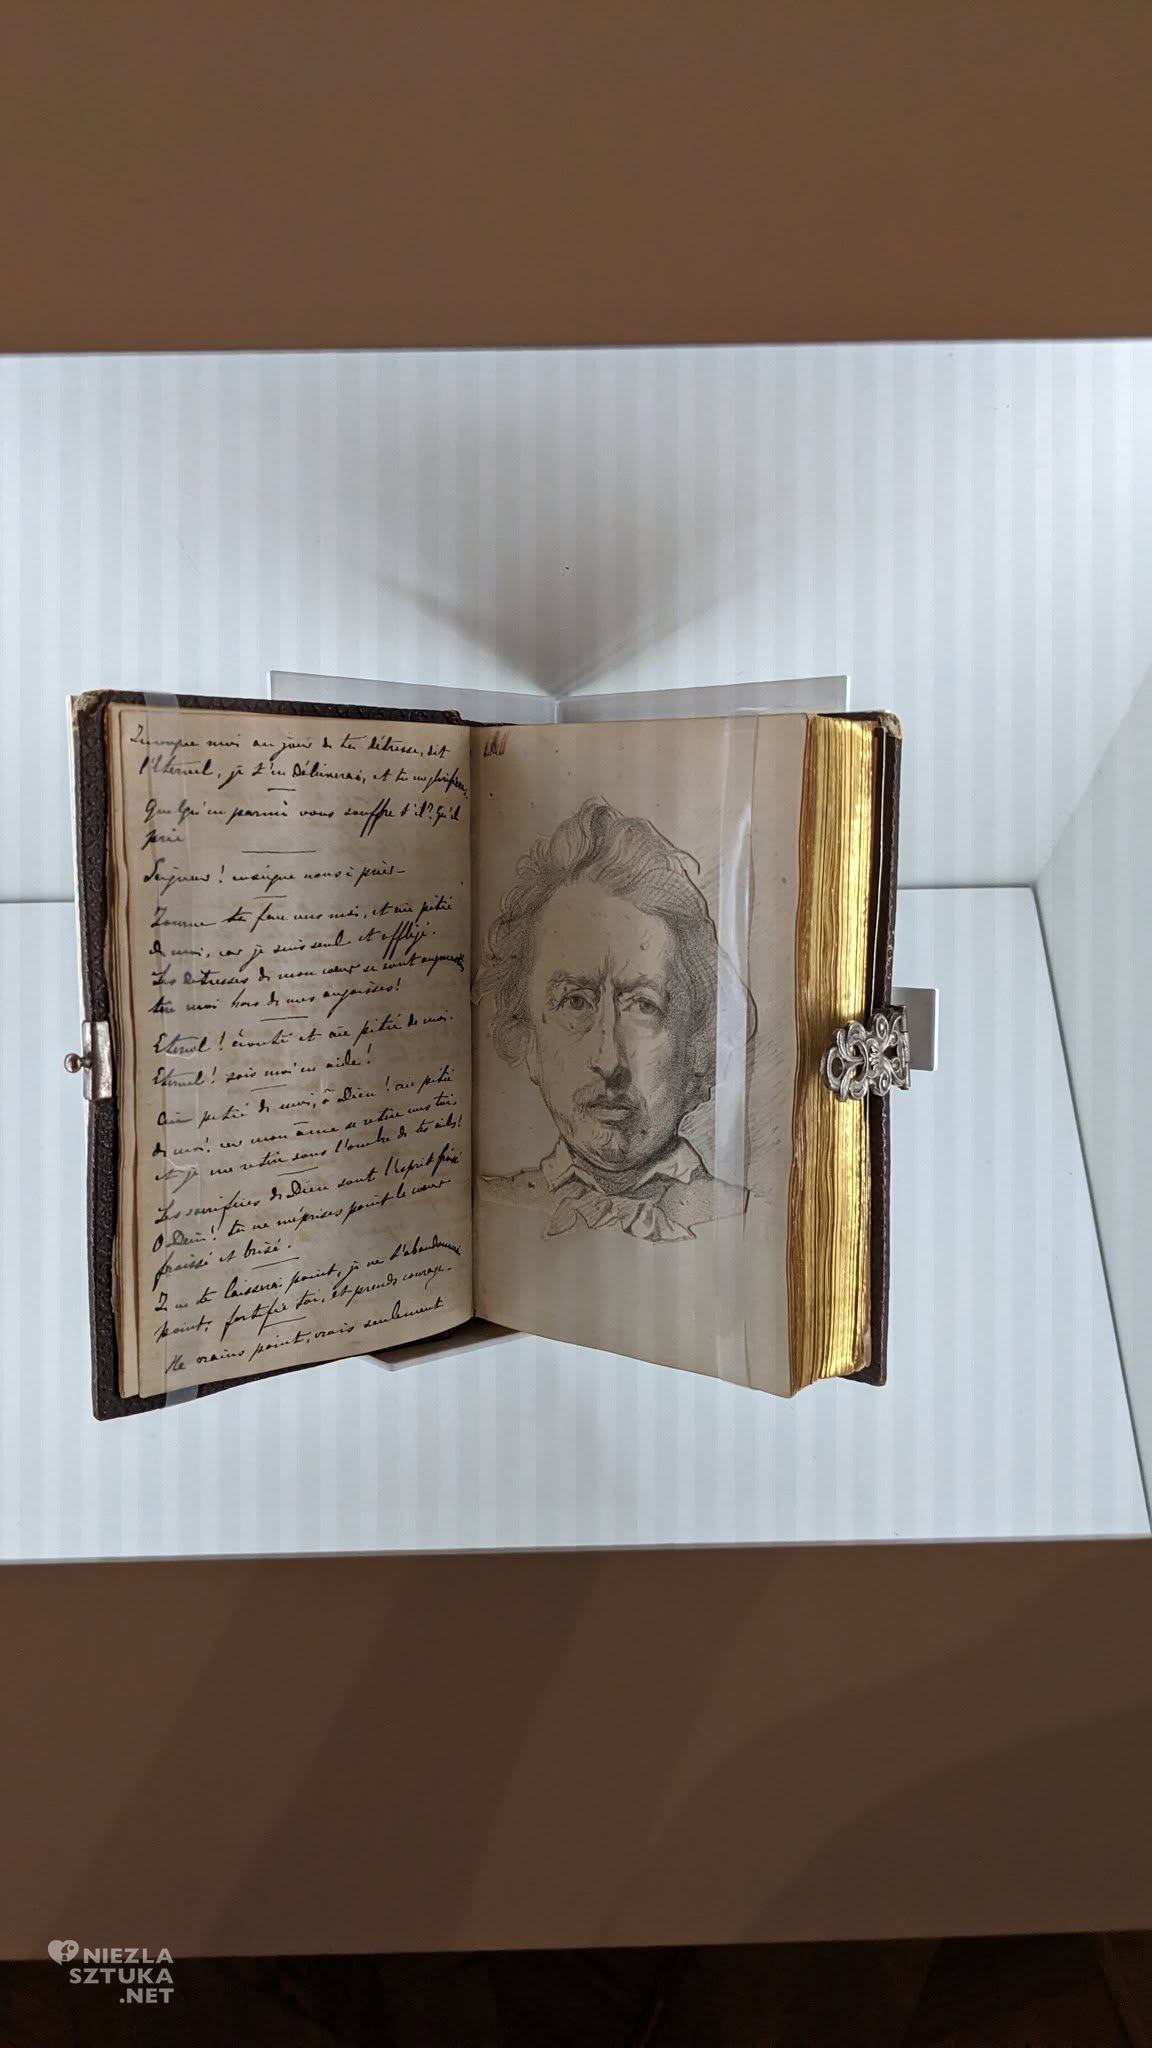 Invoque moi au jour de ta détresse, dit
l'Eternel, je t'en délivrerai, et tu me glorifieras.
Quelqu'un parmi vous souffre t'il? Qu'il
prie
Seigneur! enseigne nous à prier -
Tourne ta face vers moi, et aie pitié
de moi, car je suis seul et affligé.
Les détresses de mon cœur se sont augmentés
tire moi hors de mes angoisses!
Eternel! écoute et aie pitié de moi.
Eternel! sois moi en aide!
Aie pitié de moi, ô Dieu! aie pitié
de moi! car mon âme se retire vers toi,
et je me retire sous l'ombre de tes ailes!
Les sacrifices de Dieu sont l'esprit froissé
O Dieu! tu ne méprises point le cœur
froissé et brisé.
Je ne te laisserai point, je ne t'abandonnerai
point, fortifie toi, et prends courage.
Ne crains point, crois seulement
NIEZLA
SZTUKA
.NET